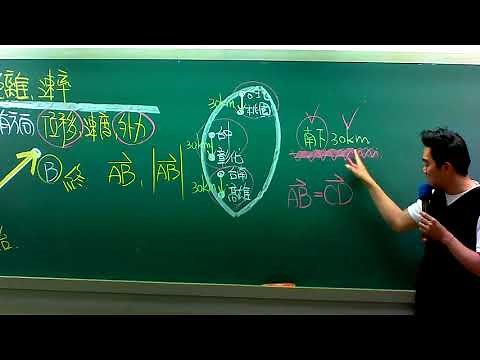 離,速率
有方向 位移,速度,外力
B 終 AB, |AB|
始
30km 台北
桃園
30km 台中
彰化
30km 台南
高雄
南下30km
AB=CD